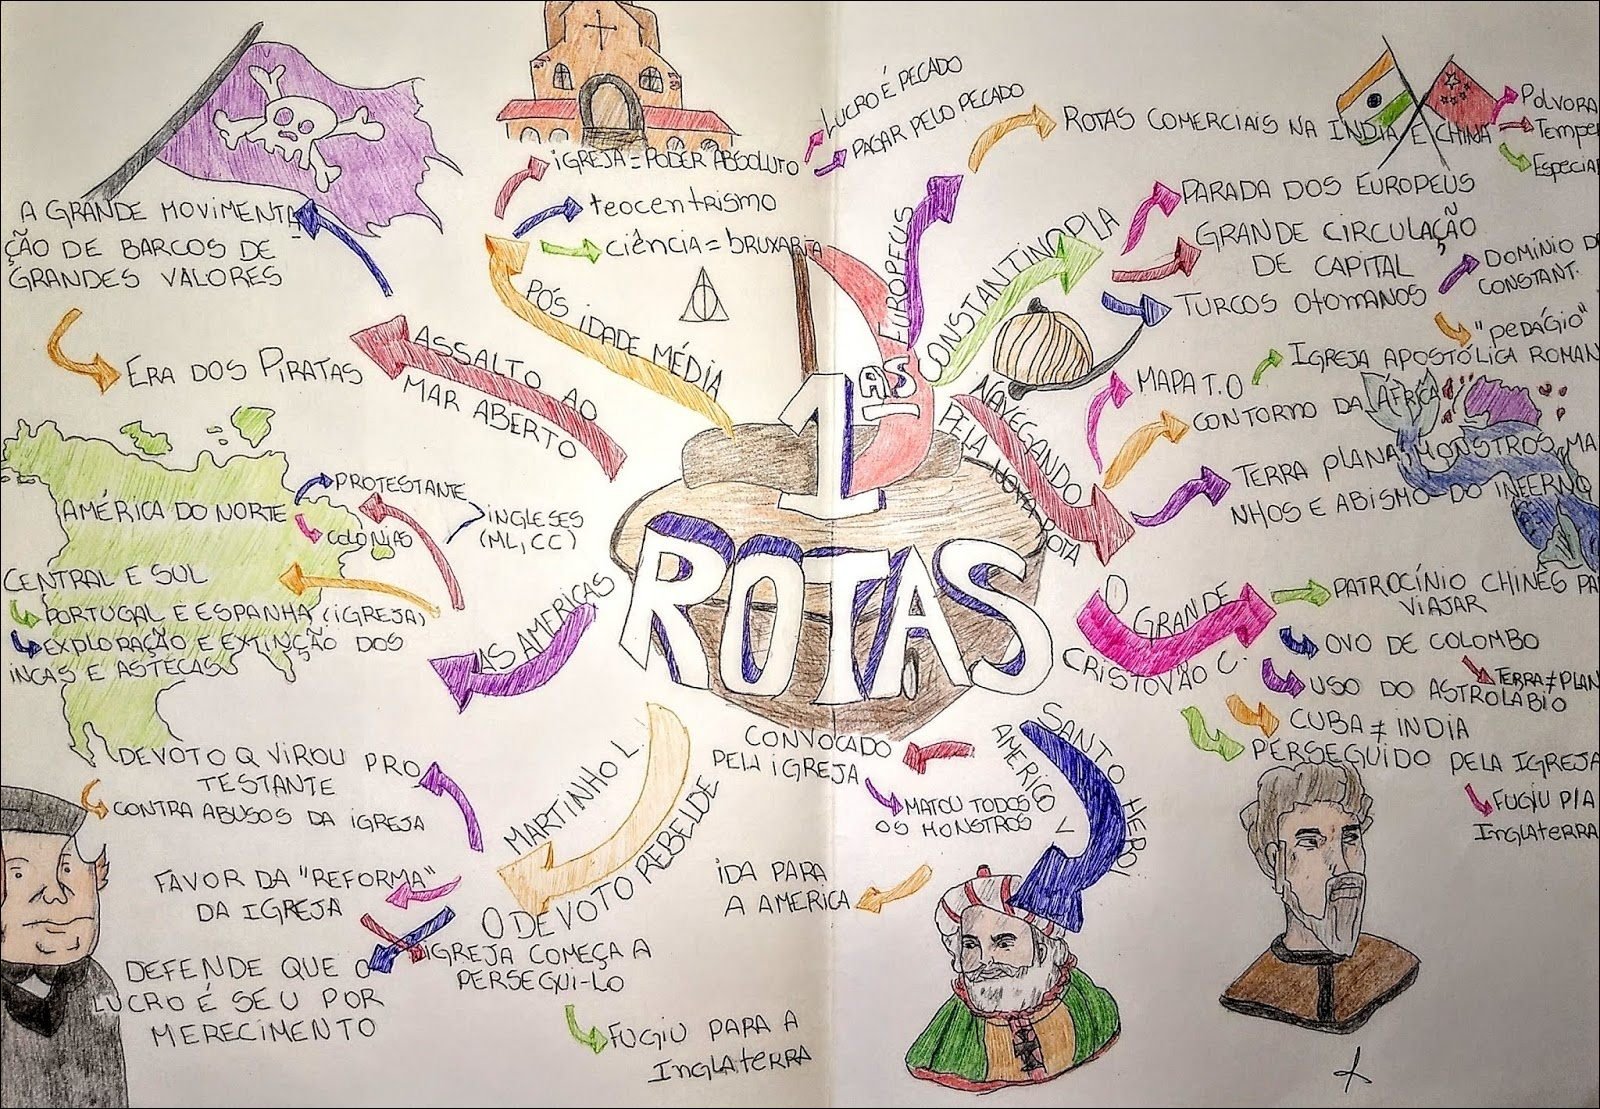 1ªS
ROTAS
PÓS IDADE MÉDIA
IGREJA = PODER ABSOLUTO
LUCRO É PECADO
PAGAR PELO PECADO
teocentrismo
CIÊNCIA = BRUXARIA
EUROPEUS
ROTAS COMERCIAIS NA ÍNDIA E CHINA
PÓLVORA
CONSTANTINOPLA
PARADA DOS EUROPEUS
GRANDE CIRCULAÇÃO
DE CAPITAL
TURCOS OTOMANOS
DOMÍNIO
CONSTANT.
"PEDÁGIO"
NAVEGANDO
PELA NOVA ROTA
MAPA T.O
IGREJA APOSTÓLICA
CONTORNO DA ÁFRICA
TERRA PLANA, MONSTROS
NHOS E ABISMO DO INFERNO
O GRANDE
CRISTOVÃO C.
PATROCÍNIO CHINES
VIAJAR
OVO DE COLOMBO
TERRA ≠
USO DO ASTROLÁBIO
CUBA ≠ INDIA
PERSEGUIDO PELA IGREJA
FUGIU P/A
INGLATERRA
SANTO HERÓI
AMÉRICO V
CONVOCADO
PELA IGREJA
MATOU TODOS
OS MONSTROS
IDA PARA
A AMERICA
MARTINHO L.
O DEVOTO REBELDE
DEVOTO Q VIROU PRO
TESTANTE
CONTRA ABUSOS DA IGREJA
FAVOR DA "REFORMA"
DA IGREJA
DEFENDE QUE O
LUCRO É SEU POR
MERECIMENTO
IGREJA COMEÇA A
PERSEGUI-LO
FUGIU PARA A
INGLATERRA
AS AMERICAS
AMÉRICA DO NORTE
PROTESTANTE
COLONIAS
INGLESES
(ML, CC)
CENTRAL E SUL
PORTUGAL E ESPANHA (IGREJA)
EXPLORAÇÃO E EXTINÇÃO DOS
INCAS E ASTECAS
ASSALTO AO
MAR ABERTO
A GRANDE MOVIMENTA
ÇÃO DE BARCOS DE
GRANDES VALORES
ERA DOS PIRATAS